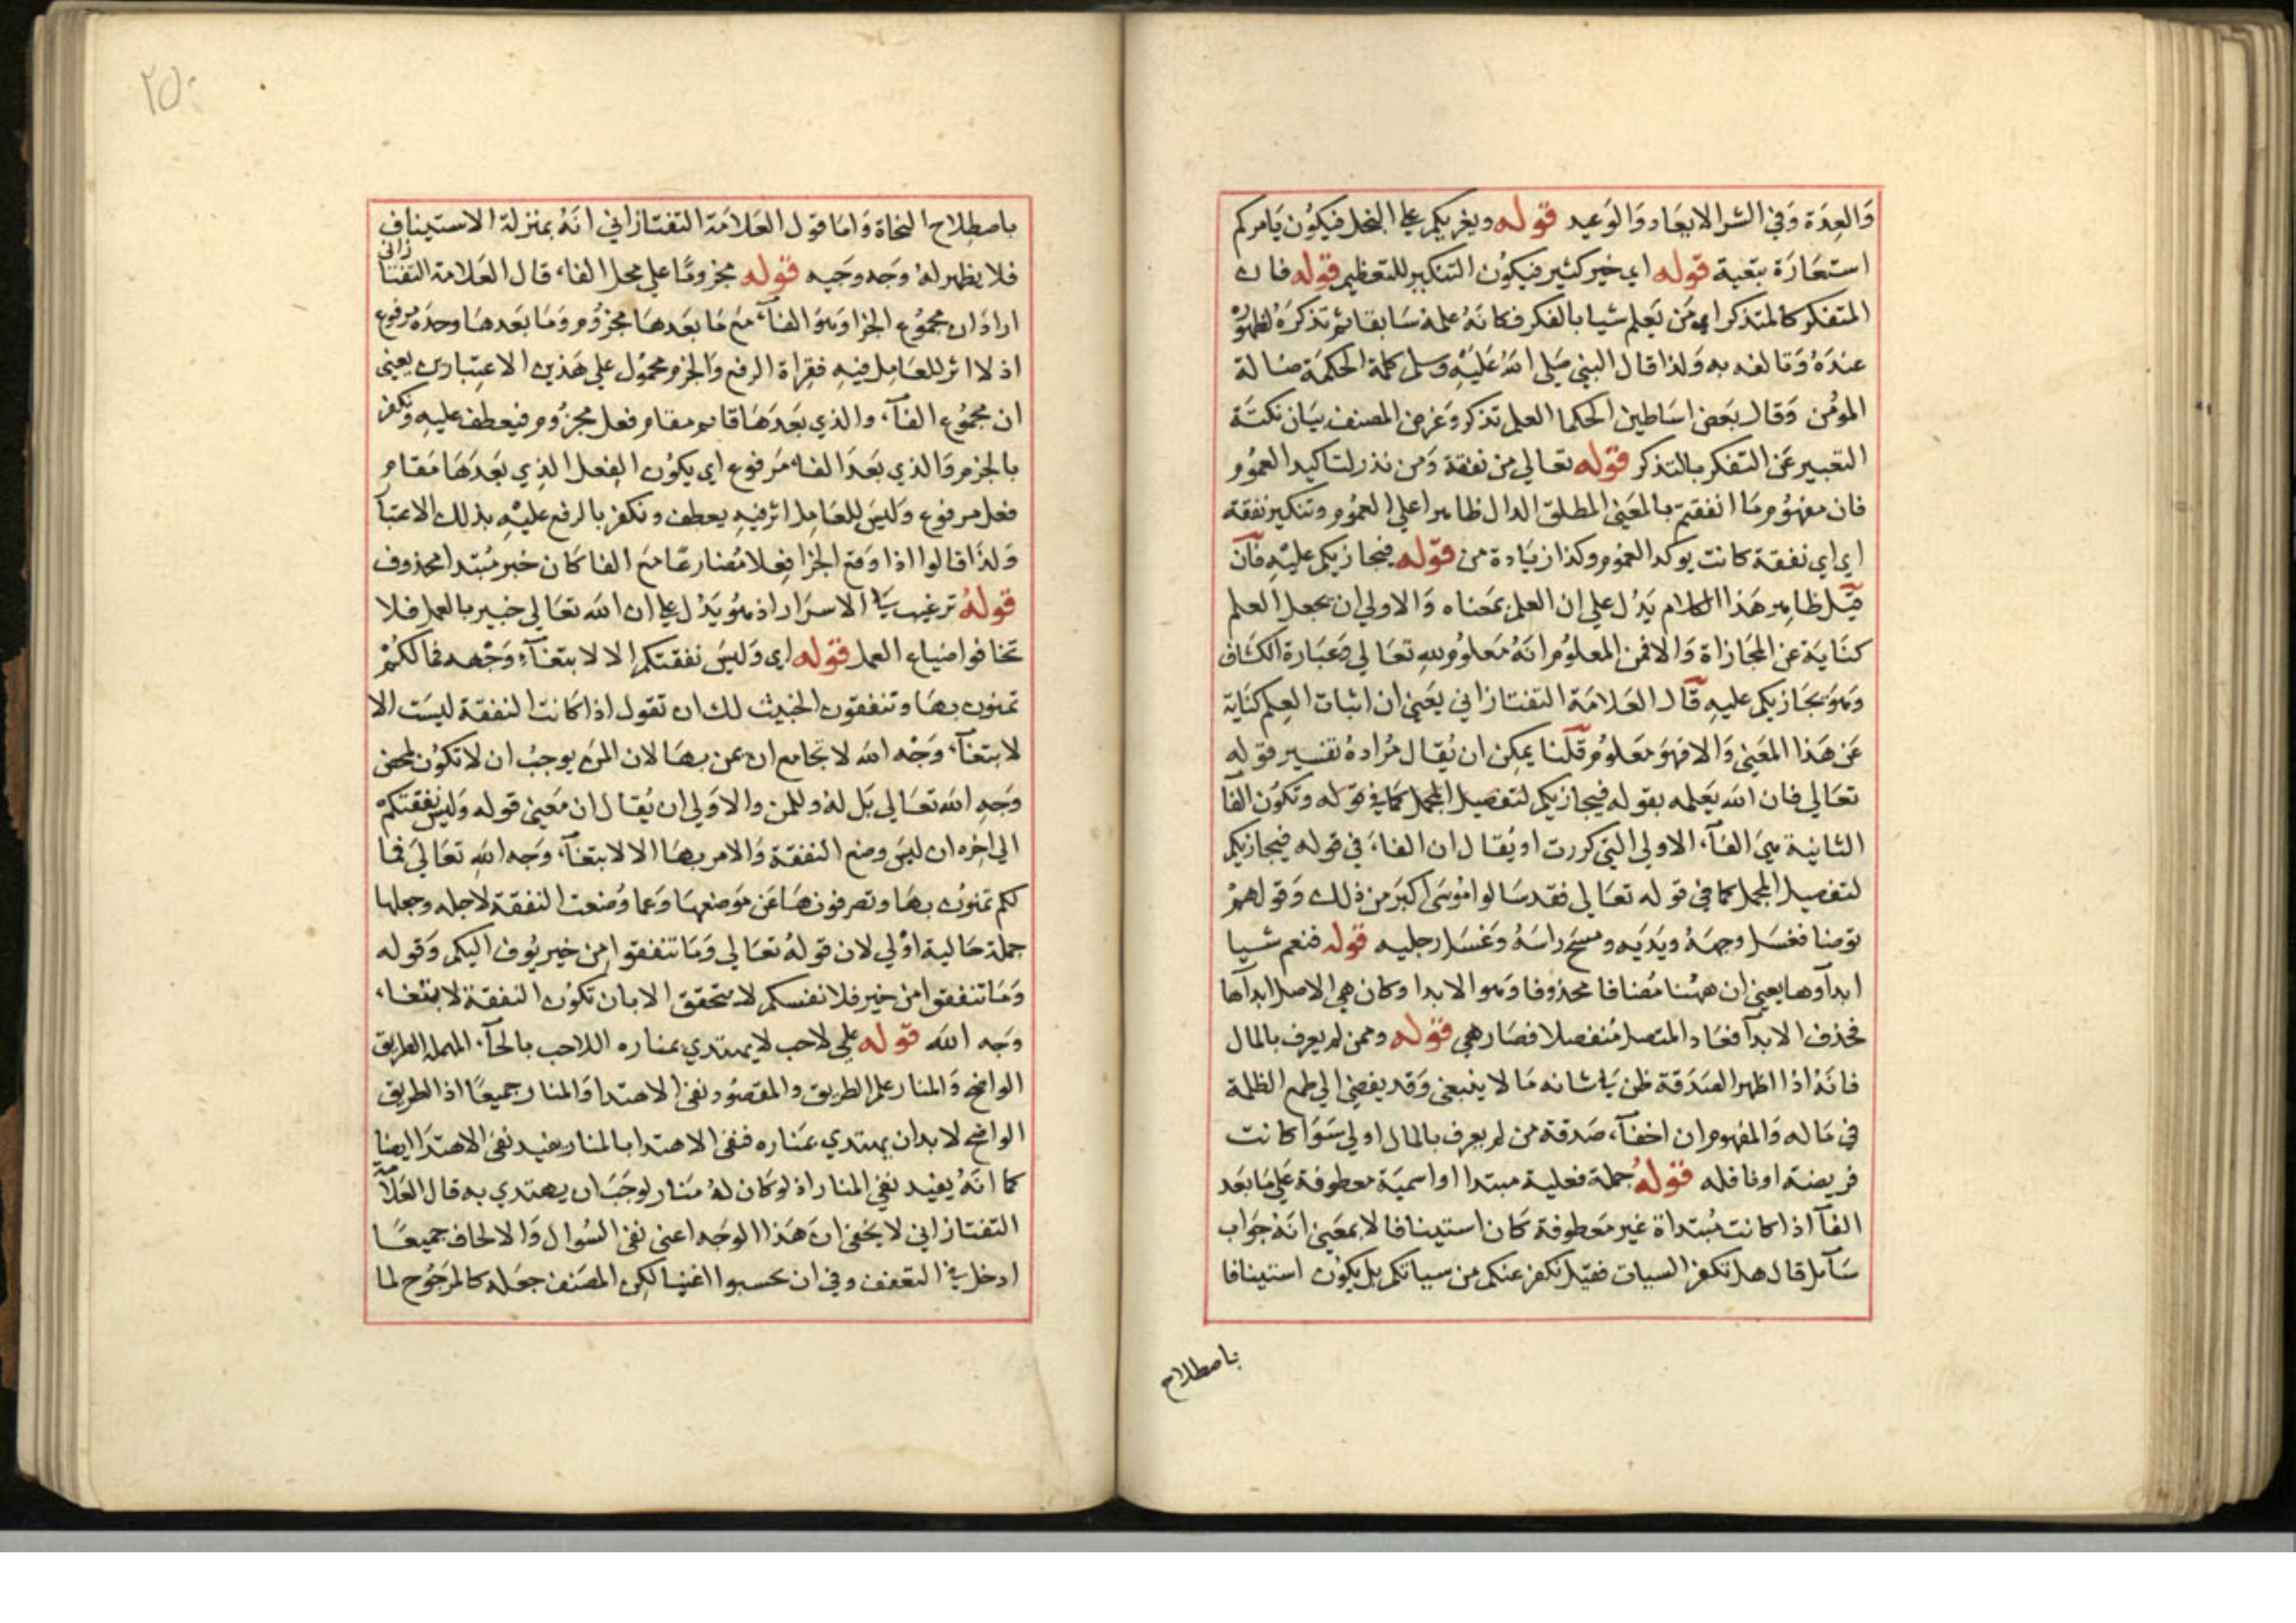 وَالعِدَة وَفي الشر الابعَاد وَالوَعيد قوله ويغريكم على البخل فيكوُن يَامركم
استعَارَة بتعية قوله اي خير كثير فيكوُن التنكير للتعظيم قوله فان
المتفكر كالمتذكر اي مَن يَعلم شيا بالفكر فكانهُ علمهُ سَابقا ثم تذكرَهُ لظهوُره
عندَهُ وَتالفه به وَلذا قال النبي صَلى اللهُ عَليْهِ وسلم كلمة الحكمَة ضالة
الموُمن وَقال بعَض اسَاطين الحكما العلم تذكر وَغرض المصنف بيَان نكتَة
التعبير عَن التفكر بالتذكر قوله تعالي من نفقة وَمن نذر لتاكيد العموُم
فان مفهوُم مَا انفقتم بالمعَنى المطلق الدال ظاهرا على العموُم وتنكير نفقة
اي اي نفقة كانت يوكد العموُم وكذا زيَادة من قوله فيجازيكم عليْهِ فآن
قيل ظاهر هَذا الكلام يَدُل على ان العلم بمَعناه وَالاولي ان يجعل العلم
كنَاية عن المجَازاة وَالا فمن المعلوُم انهُ مَعلوُم لله تعَالي وَعبَارة الكشاف
وَهوَ يجَازيكم عليهِ قال العَلامَة التفتازاني يعَني ان اثبات العِلم كنَاية
عَن هَذا المعَني وَالا فهوَ معَلوُم قلنا يمكِن ان يُقال مُرَادهُ تفسير قوله
تعَالي فان الله يَعلمه بقوله فيجازيكم لتفصيل المجمل كما في قوله وتكوُن الفآ
الثانية هيَ الفآء الاولي التي كررت او يُقال ان الفاء في قوله فيجازيكم
لتفصيل المجمل كما في قوله تعَالي فقد سَالوا موُسَى اكبَر من ذلك وَقولهمْ
توضا فغسَل وجههُ ويَدَيَه ومسَح راسَهُ وَغسَل رجليه قوله فنعم شيا
ابدآوها يعني ان ههُنا مُضَافا محذوفا وَهو الابدا وكان هي الاصل ابدآها
فحذف الابدآ فعَاد المتصل مُنفصلا فصَار هي قوله وممن لم يعرف بالمال
فانهُ اذا اظهر الصَدَقة ظن بشانه مَا لا ينبغي وَقد يفضي الي طمع الظلمة
في مَاله وَالمفهوم ان اخفآء صَدقة من لم يعرف بالمال اولي سَوَا كانت
فريضة او نافله قولهُ جملة فعلية مبتدا او اسميَة معطوفة عَلي مَا بعَد
الفآ اذا كانت مُبتداة غير مَعطوفة كَان استينافا لا بمعَني انهُ جَواب
سَآيل قال هل تكفر السيات فقيل نكفر عنكم من سياتكم بل يكوُن استينافا
باصطلاح
٢٥٠
باصطِلاح النحاة وَامَا قول العَلامَة التفتازاني انهُ بمنزلة الاستيناف
فلا يظهر لهُ وَجه وَجيه قوله مجزومًا على محل الفاء قال العَلامة التفتازاني
ارادَ ان مجموُع الجزا وَهوَ الفآء مَع مَا بعَدهَا مجزوُم وَمَا بعَدهَا وحدَهُ مرفوع
اذ لا اثر للعَامِل فيهِ فقراة الرفع وَالجزم محموُل على هَذين الاعتِبارين يعني
ان مجموُع الفآء والذي بعَدهَا قايم مقام فعل مجزوُم فيعطف عليهِ ونكفر
بالجزم وَالذي بعَدَ الفاء مَرفوع اي يكوُن الفعل الذي بعَدهَا مَقام
فعل مرفوع وَليسَ للعَامِل اثر فيهِ يعطف ونكفر بالرفع عليْهِ بذلك الاعتبآ
وَلذا قالوا اذا وَقع الجزا فعلا مُضارعًا مَع الفا كان خبر مُبتدا محذوف
قولهُ ترغيب في الاسرَار اذ هوُ يَدُل على ان الله تعَالي خبير بالعمل فلا
تخافوا ضيَاع العمل قوله اي وَليسَ نفقتكم الا لابتغآء وَجْهه فما لكمْ
تمنون بهَا وتنفقون الخبيث لك ان تقول اذا كانت النفقة ليسَت الا
لابتغآء وَجْه الله لا تجامع ان يمن بهَا لان المن يوجبُ ان لا تكوُن لمحض
وَجهِ الله تعَالي بَل لهُ وللمن والاولي ان يُقال ان مَعني قوله وَليسَ نفقتكم
الى اخِره ان ليسَ وضع النفقة وَالامر بهَا الا لابتغآء وَجه الله تعَاليَ فما
لكم تمنوُن بهَا وتصرفونهَا عَن مَوضعهَا وَعما وُضعت النفقة لاجله وجعلها
جملة حَالية اوْلي لان قولهُ تعَالي وَمَا تنفقوا من خير يوُف اليكم وَقوله
وَمَا تنفقوا من خير فلانفسكم لا يتحقق الا بان تكوُن النفقة لابتغاء
وَجه الله قوله على لاحب لا يهتدي بمناره اللاحب بالحآء المهملة الطريق
الواضح وَالمنار علم الطريق والمقصوُد نفي الاهتدا وَالمنار جميعًا اذ الطريق
الواضح لا بد ان يهتدي بمَناره فنفي الاهتدا بالمنار يفيد نفي الاهتدَا ايضا
كما انهُ يفيد نفي المنار اذ لو كَان لهُ مَنار لوجَبَ ان يهتدي به قال العَلامة
التفتازاني لا يخَفي ان هَذا الوجَه اعني نفي السُوال وَالالحاف جميعًا
ادخل في التعفف وفي ان يحسبوا اغنيا لكِن المصَنف جعَله كالمرَجُوح لما